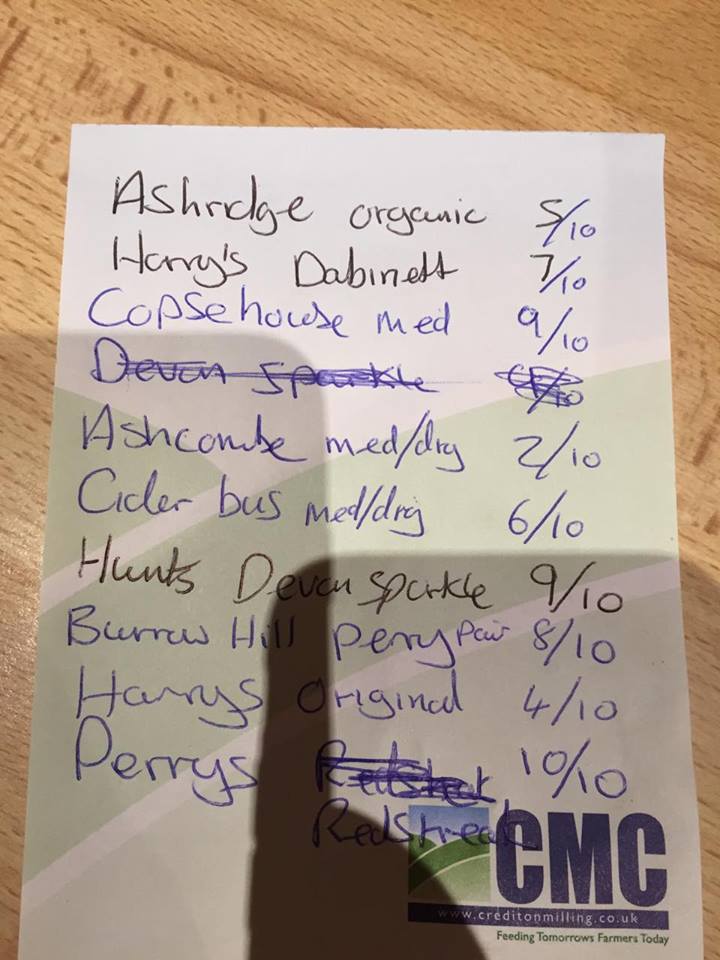 Ashridge organic 5/10
Harry's Dabinett 7/10
Copsehouse med 9/10
Devon Sparkle
Ashcombe med/dry 2/10
Cider bus med/dry 6/10
Hunts Devon Sparkle 9/10
Burrow Hill Perry Pair 8/10
Harrys Original 4/10
Perrys Redstreak 10/10
Redstreak
CMC
www.creditonmilling.co.uk
Feeding Tomorrows Farmers Today